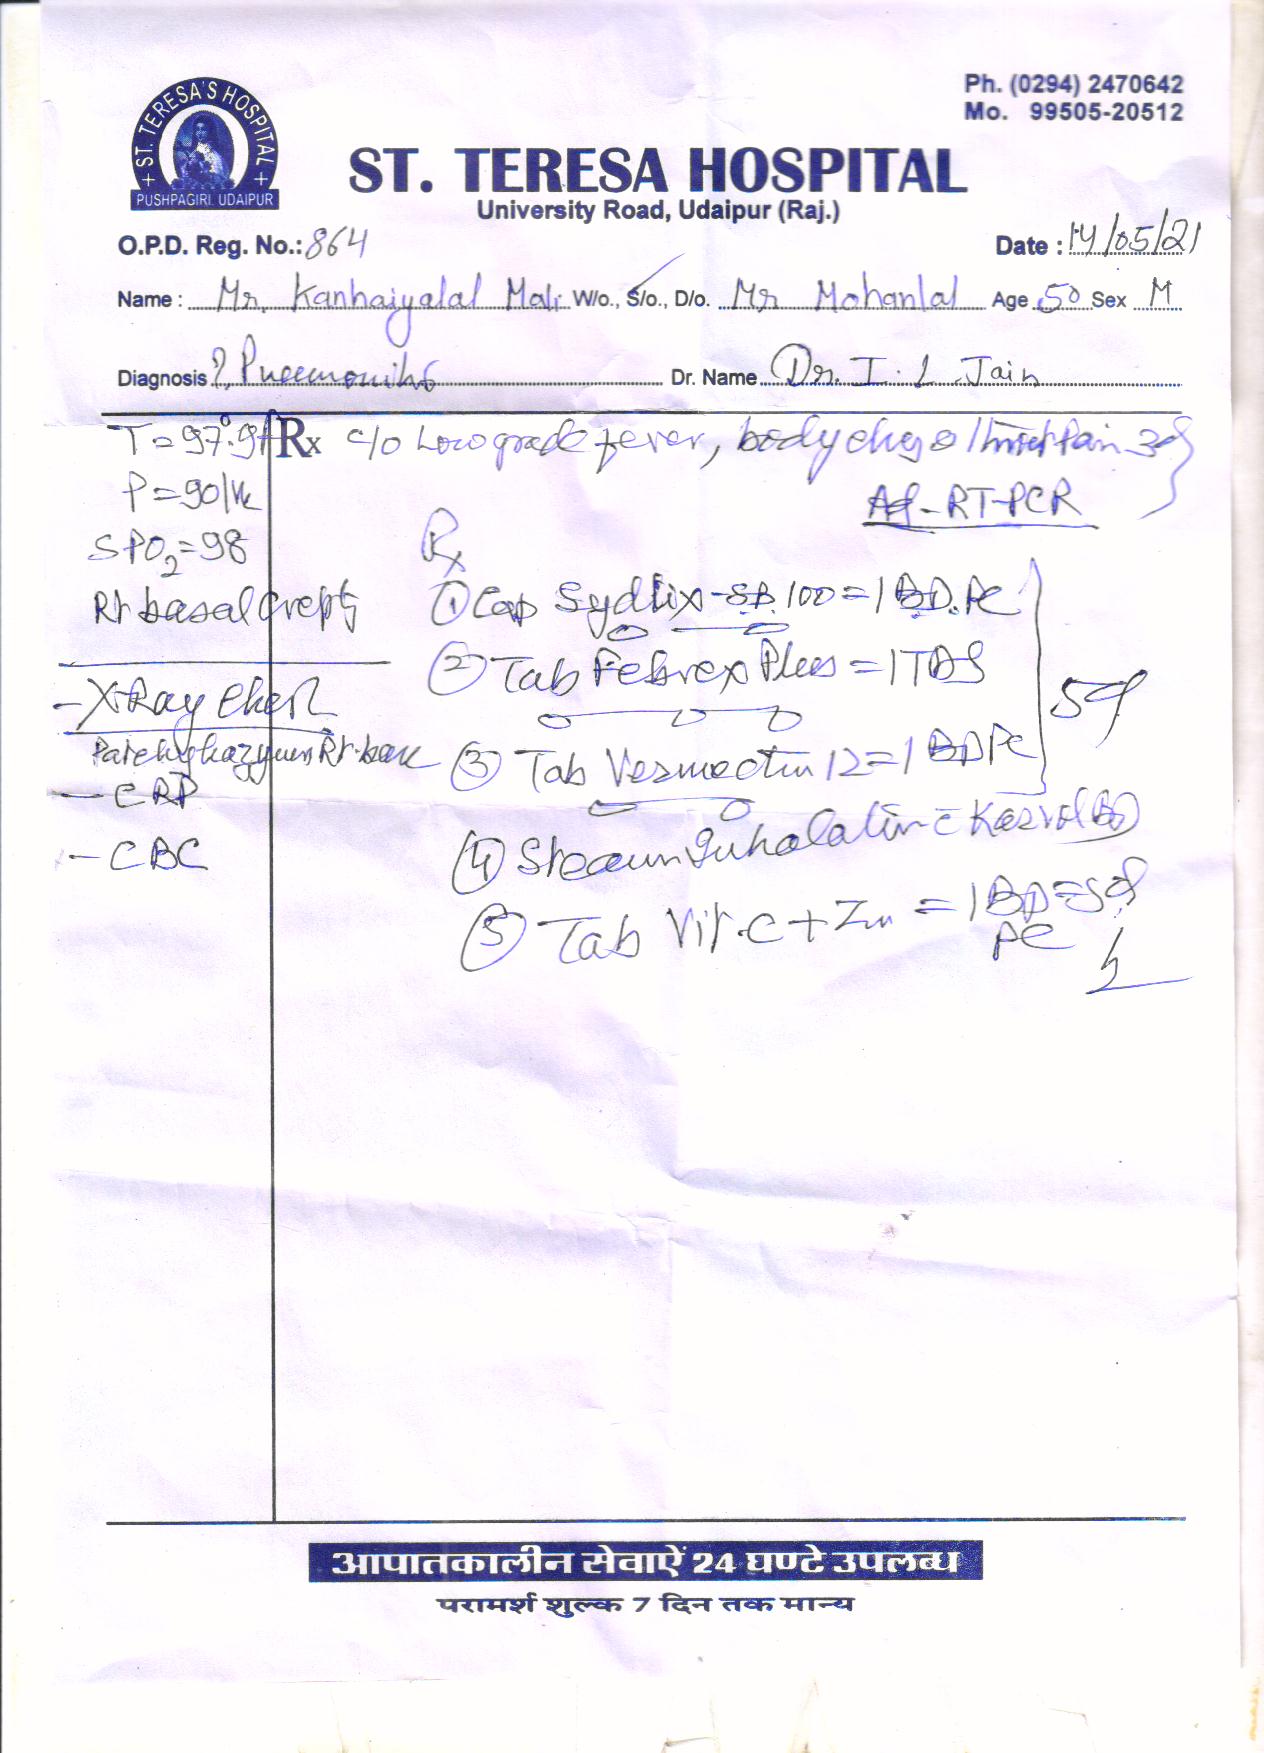 ST. TERESA'S HOSPITAL
PUSHPAGIRI. UDAIPUR
Ph. (0294) 2470642
Mo. 99505-20512
ST. TERESA HOSPITAL
University Road, Udaipur (Raj.)
O.P.D. Reg. No.: 864 Date : 14/05/21
Name : Mr. Kanhaiyalal Mali W/o., S/o., D/o. Mr Mohanlal Age 50 Sex M
Diagnosis ? Dr. Name Dr. I. L Jain
T = 97.9f Rx c/o Low grade fever,
P = 90/
Ag - RT-PCR
SPO2 = 98 Rx
Rt basal crepts ① Cap -SB 100 = 1 BD. PC
② Tab Febrex Plus = 1 TDS
- X-Ray Chest
Rt. base ③ Tab Vermectin 12 = 1 BD PC
- CRP
④ Steam Inhalation
- CBC
⑤ Tab Vit. C + Zn = 1 BD =
PC
आपातकालीन सेवाऐं 24 घण्टे उपलब्ध
परामर्श शुल्क 7 दिन तक मान्य